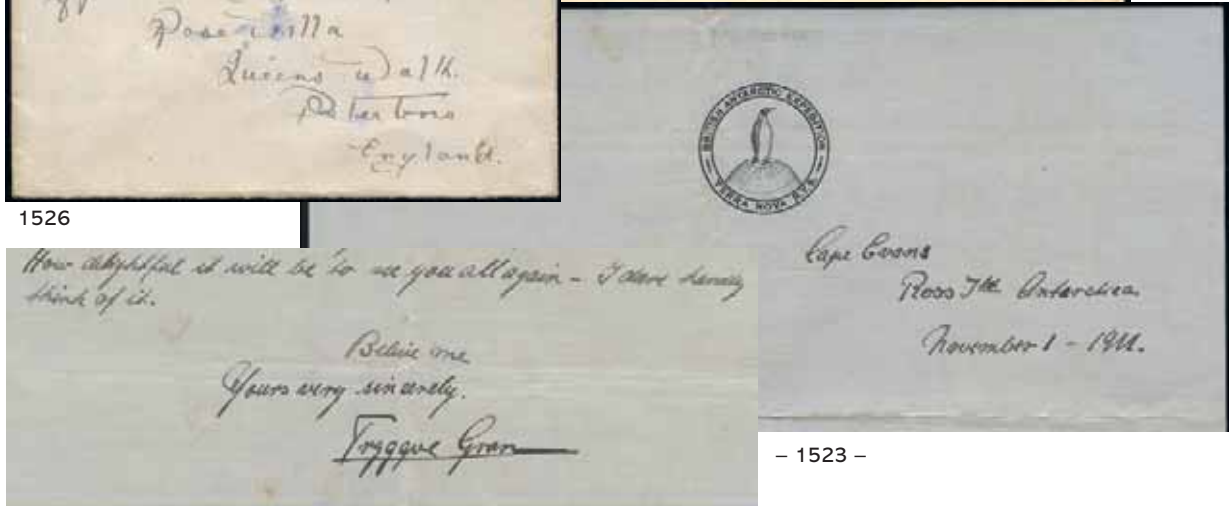 Rose Villa
Queens Walk.
Peterboro
England.
1526
BRITISH ANTARCTIC EXPEDITION
TERRA NOVA R.Y.S.
Cape Evans
Ross Ild Antarctica
November 1 - 1911.
How delightful it will be to see you all again - I dare hardly
think of it.
Belive me
Yours very sincerely.
Tryggve Gran
– 1523 –